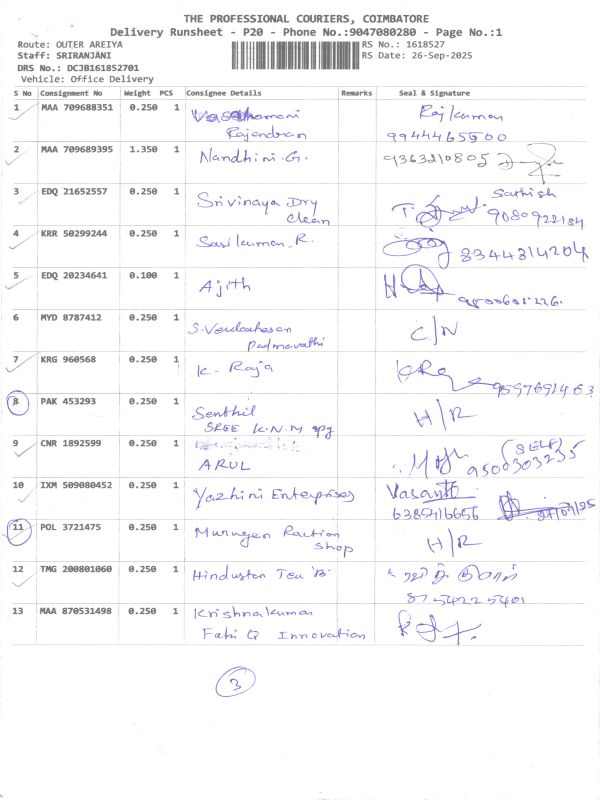 THE PROFESSIONAL COURIERS, COIMBATORE
Delivery Runsheet - P20 - Phone No.:9047080280 - Page No.:1
Route: OUTER AREIYA RS No.: 1618527
Staff: SRIRANJANI RS Date: 26-Sep-2025
DRS No.: DCJB161852701
Vehicle: Office Delivery
S No Consignment No Weight PCS Consignee Details Remarks Seal & Signature
1 MAA 709688351 0.250 1 Rajkumar
Rajendran 9944465500
2 MAA 709689395 1.350 1 Nandhini.G. 9363210805
3 EDQ 21652557 0.250 1 Srivinaya Dry Sathish
Clean 9080922184
4 KRR 50299244 0.250 1 Sasikumar.R. 8344814204
5 EDQ 20234641 0.100 1 Ajith
6 MYD 8787412 0.250 1 C/N
Padmavathi
7 KRG 960568 0.250 1 K. Raja 9597691463
8 PAK 453293 0.250 1 Senthil H/R
SREE K.N.M
9 CNR 1892599 0.250 1 (SELF)
ARUL 9500303235
10 IXM 509080452 0.250 1 Yazhini Enterprises Vasanth
6385416656 27/09/25
11 POL 3721475 0.250 1 Murugan H/R
Shop
12 TMG 200801060 0.250 1 Hindustan Tea 'B'
8754225401
13 MAA 870531498 0.250 1 Krishnakumar
Innovation
3